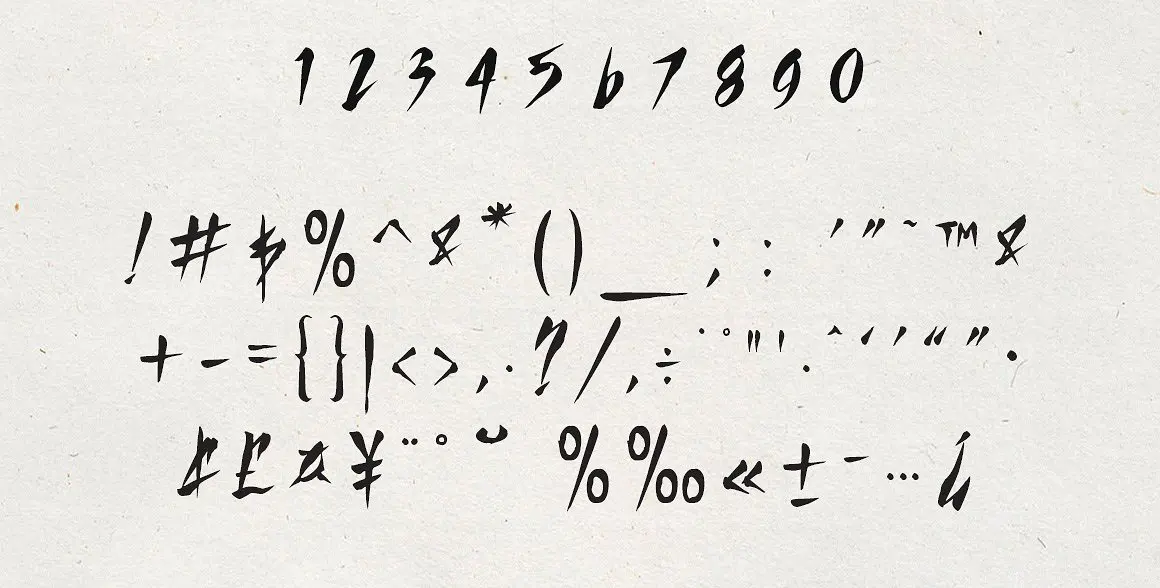 1 2 3 4 5 6 7 8 9 0
! # $ % ^ & * ( ) _ ; : ' " ~ ™ &
+ - = { } | < > , . ? / , ÷ ˙ ° " ' . ^ ‘ ’ “ ” •
¢ £ ¤ ¥ ¨ ° ˘ % ‰ « ± - … ¿